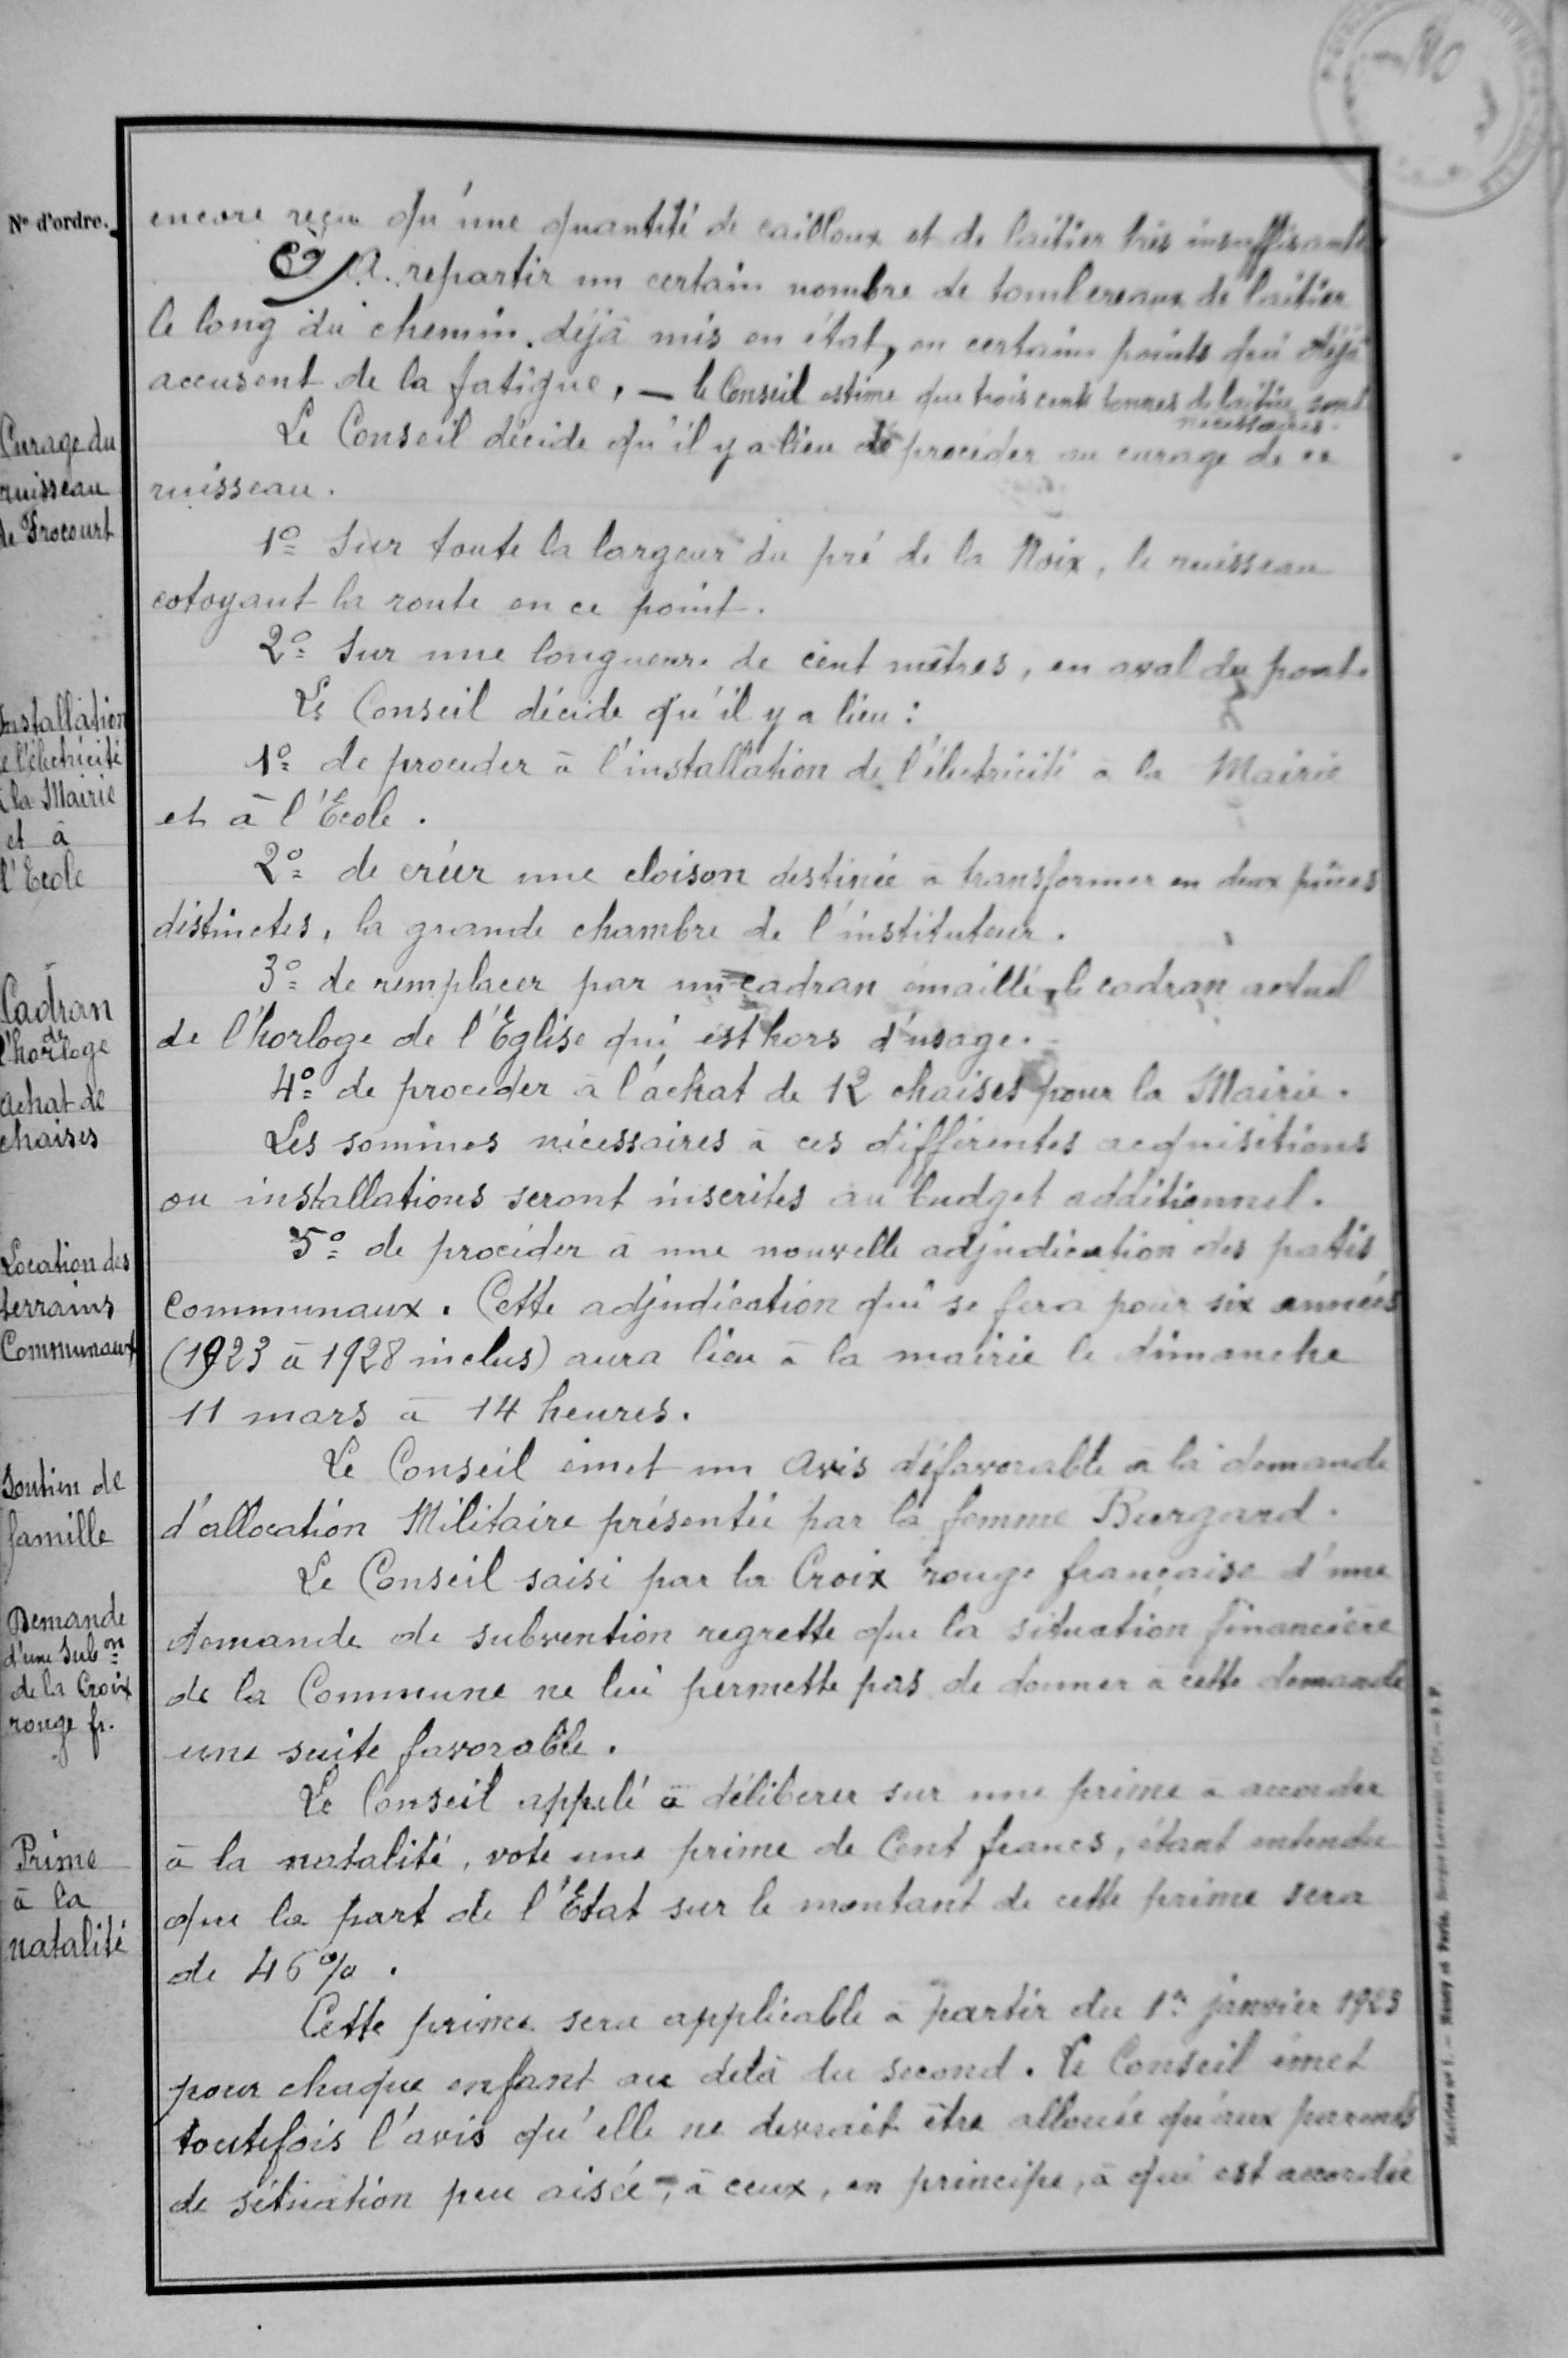 N° d'ordre.
encore reçu qu'une quantité de cailloux et de laitier très insuffisante
A repartir un certain nombre de tombereaux de laitier
le long du chemin déjà mis en état, en certains points qui déjà
accusent de la fatigue, — le Conseil estime que trois cents tonnes de laitier sont
nécessaires.
Curage du
ruisseau
de Frocourt
Le Conseil décide qu'il y a lieu de procéder au curage de ce
ruisseau.
1° Sur toute la largeur du pré de la Noix, le ruisseau
cotoyant la route en ce point.
2° Sur une longueur de cent mètres, en aval du pont.
Installation
de l'électricité
à la Mairie
et à
l'Ecole
Le Conseil décide qu'il y a lieu :
1° de proceder à l'installation de l'électricité à la Mairie
et à l'Ecole.
2° de créer une cloison destinée à transformer en deux pièces
distinctes, la grande chambre de l'instituteur.
Cadran
de
l'horloge
3° de remplacer par un cadran émaillé, le cadran actuel
de l'horloge de l'Eglise qui est hors d'usage.
Achat de
chaises
4° de proceder à l'achat de 12 chaises pour la Mairie.
Les sommes nécessaires à ces différentes acquisitions
ou installations seront inscrites au budget additionnel.
Location des
terrains
Communaux
5° de procéder à une nouvelle adjudication des patis
communaux. Cette adjudication qui se fera pour six années
(1923 à 1928 inclus) aura lieu à la mairie le dimanche
11 mars à 14 heures.
Soutien de
famille
Le Conseil émet un avis défavorable à la demande
d'allocation Militaire présentée par la femme Burgard.
Demande
d'une Sub on
de la Croix
rouge fr.
Le Conseil saisi par la Croix rouge française d'une
demande de subvention regrette que la situation financière
de la Commune ne lui permette pas de donner à cette demande
une suite favorable.
Prime
à la
natalité
Le Conseil appelé à déliberer sur une prime à accorder
à la natalité, vote une prime de Cent francs, étant entendu
que la part de l'Etat sur le montant de cette prime sera
de 46%.
Cette prime sera applicable à partir du 1er janvier 1923
pour chaque enfant au delà du second. Le Conseil émet
toutefois l'avis qu'elle ne devrait être allouée qu'aux parents
de situation peu aisée, à ceux, en principe, à qui est accordée